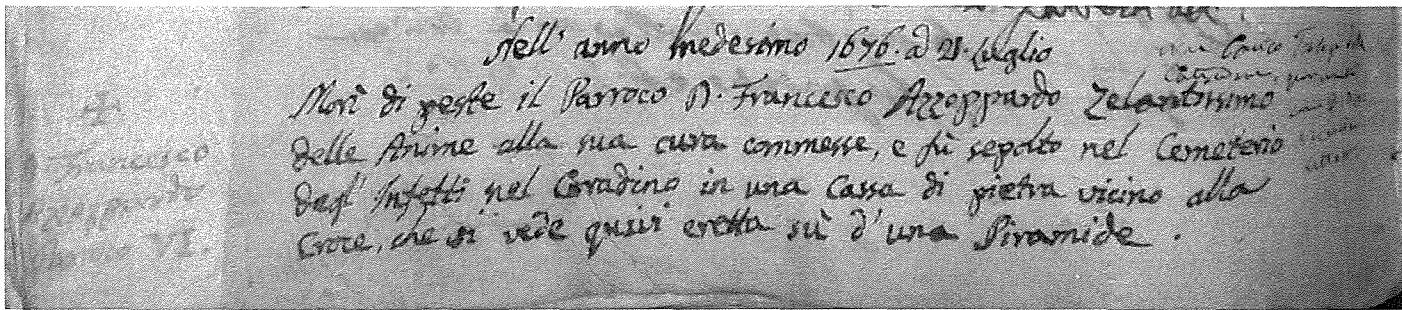 Nell' anno medesimo 1676. ad 21. Luglio
Morì di peste il Parroco D. Francesco Azzoppardo Zelantissimo
delle Anime alla sua cura commesse, e fù sepolto nel Cemeterio
degl' Infetti nel Coradino in una Cassa di pietra vicino alla
Croce, che si vede quivi eretta sù d'una Piramide.
Francesco
Azzoppardo
VI.